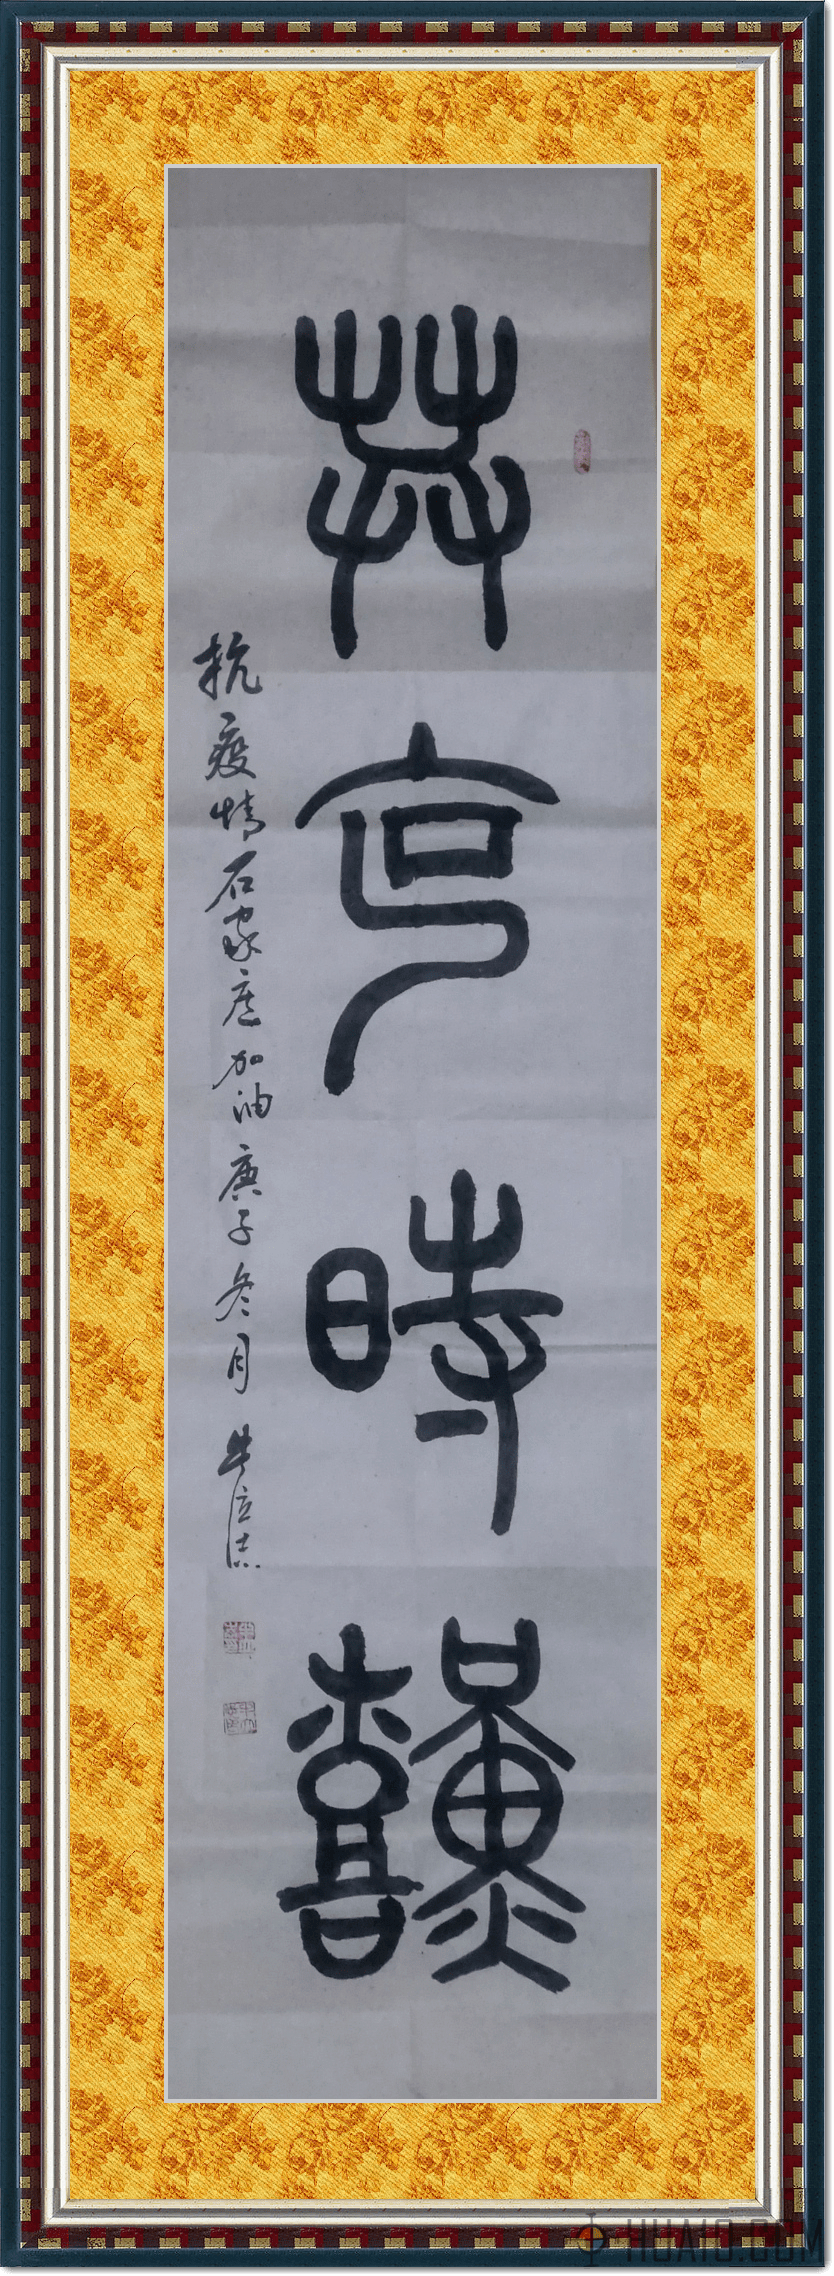 共克時艱
抗疫情石家庄加油庚子冬月牛
HUA10.COM